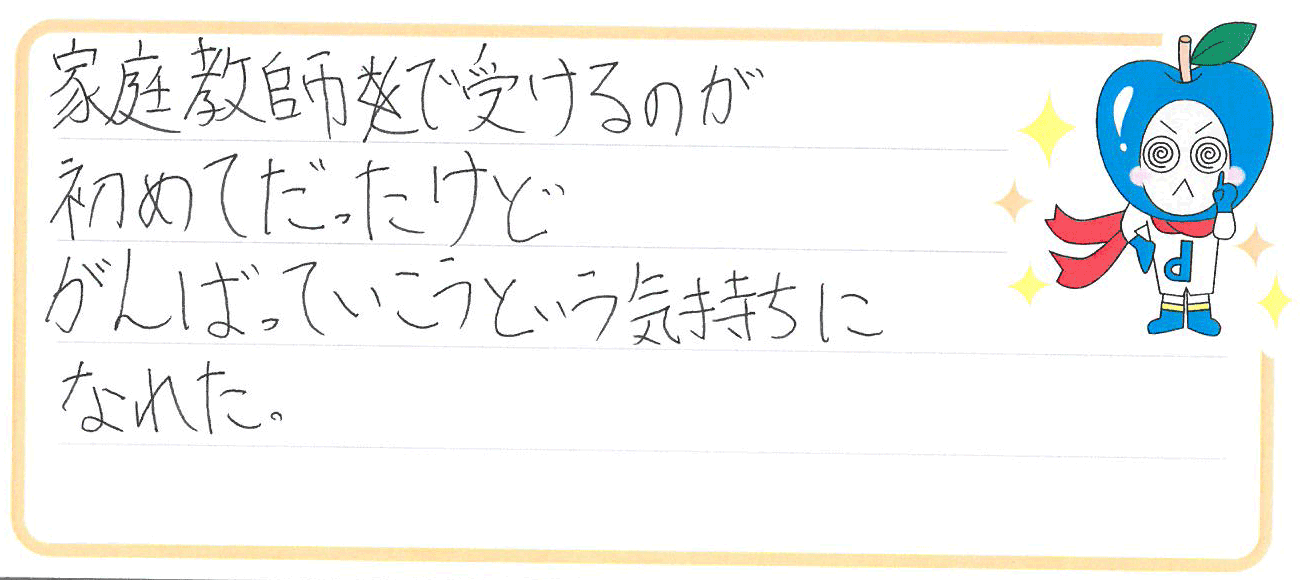 家庭教師で受けるのが
初めてだったけど
がんばっていこうという気持ちに
なれた。
d